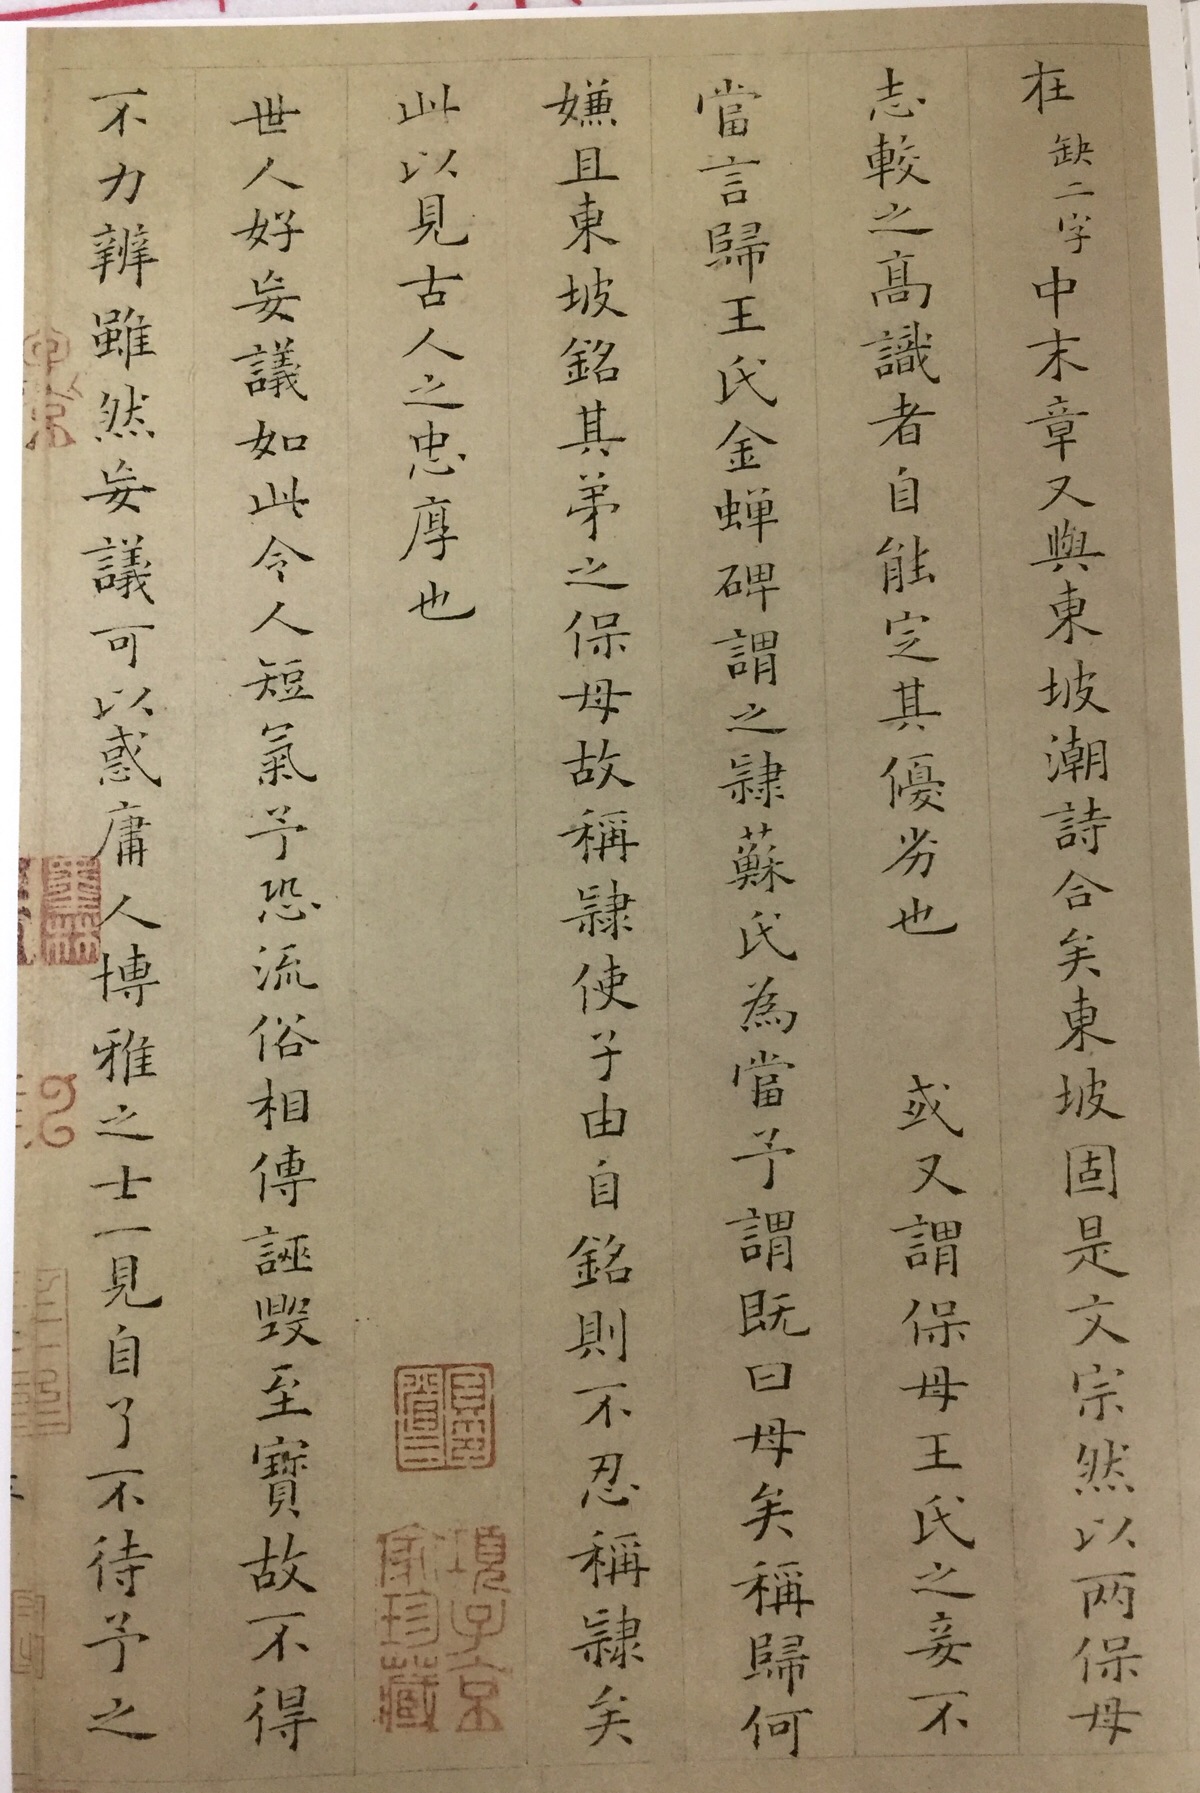 在缺二字中末章又與東坡潮詩合矣東坡固是文宗然以两保母
志較之高識者自能定其優劣也　或又謂保母王氏之妾不
當言歸王氏金蟬碑謂之隸蘇氏為當予謂既曰母矣稱歸何
嫌且東坡銘其弟之保母故稱隸使子由自銘則不忍稱隸矣
此以見古人之忠厚也
項子京家珍藏
世人好妄議如此令人短氣予恐流俗相傳誣毀至寶故不得
不力辨雖然妄議可以惑庸人博雅之士一見自了不待予之